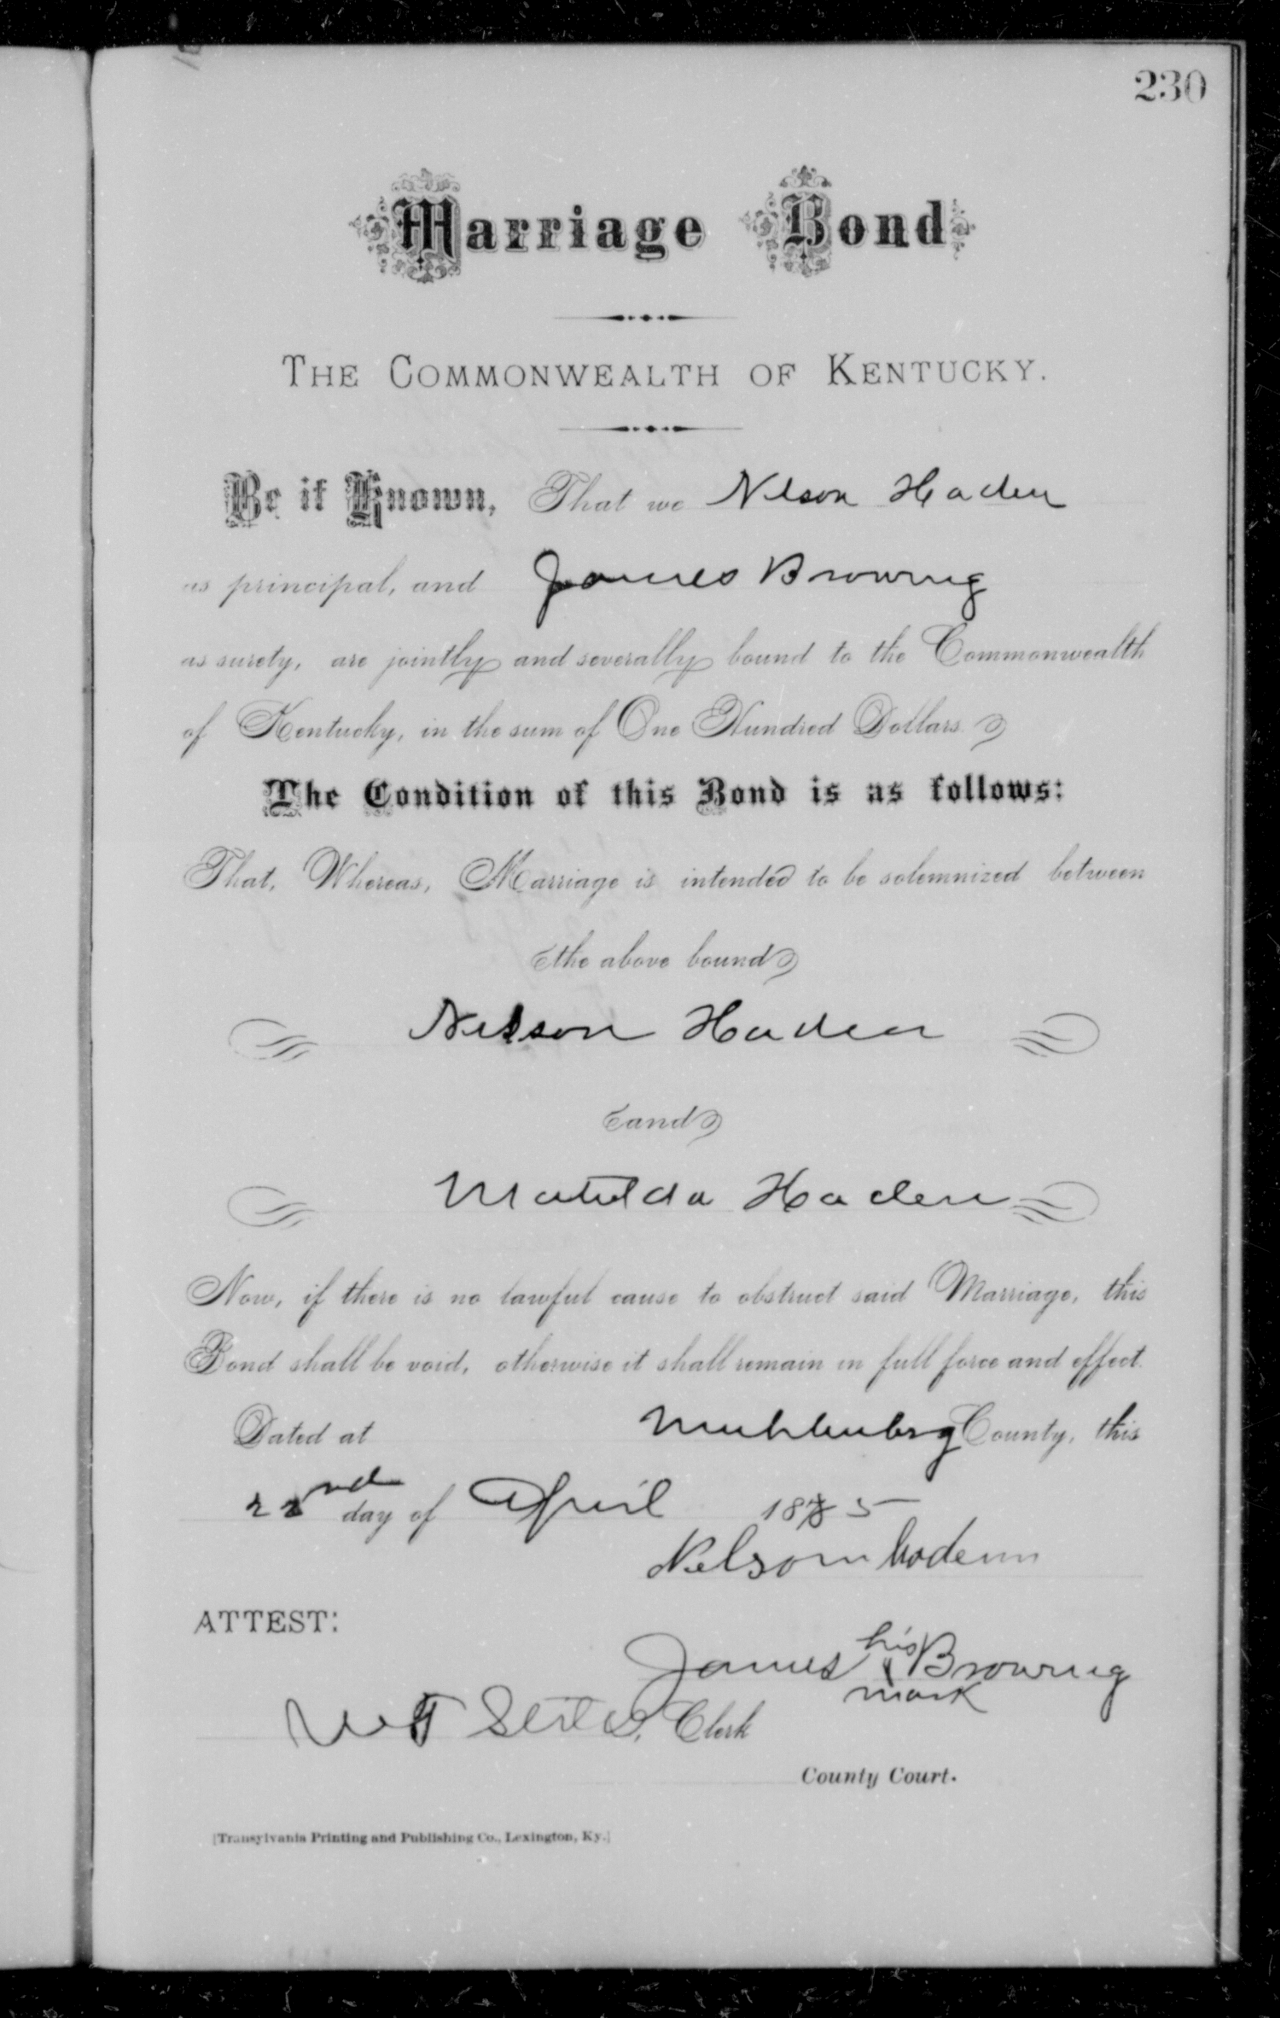 230
Marriage Bond
THE COMMONWEALTH OF KENTUCKY.
Be it Known, That we Nelson Haden
as principal, and James Browning
as surety, are jointly and severally bound to the Commonwealth
of Kentucky, in the sum of One Hundred Dollars.
The Condition of this Bond is as follows:
That, Whereas, Marriage is intended to be solemnized between
the above bound
Nelson Haden
and
Matilda Haden
Now, if there is no lawful cause to obstruct said Marriage, this
Bond shall be void, otherwise it shall remain in full force and effect.
Dated at Muhlenberg County, this
22nd day of April 1885
Nelson
ATTEST:
James his x mark Browning
Clerk
County Court.
[Transylvania Printing and Publishing Co., Lexington, Ky.]